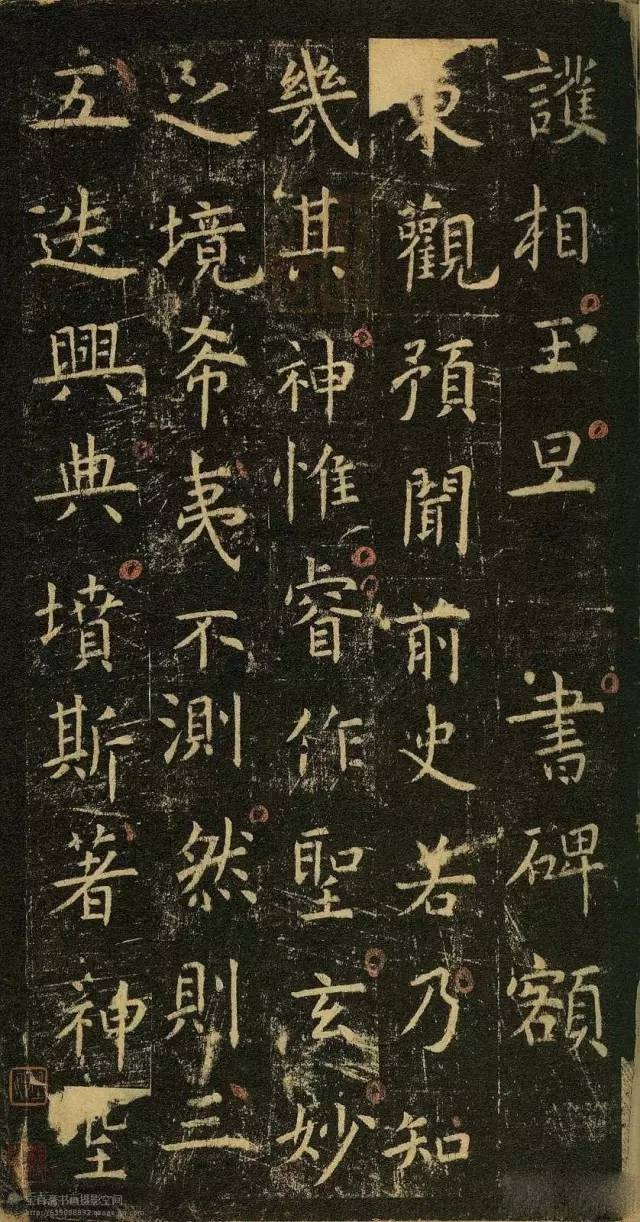 護相王旦 書碑額
東觀預聞前史若乃知
幾其神惟睿作聖玄妙
之境希夷不測然則三
五迭興典墳斯著神